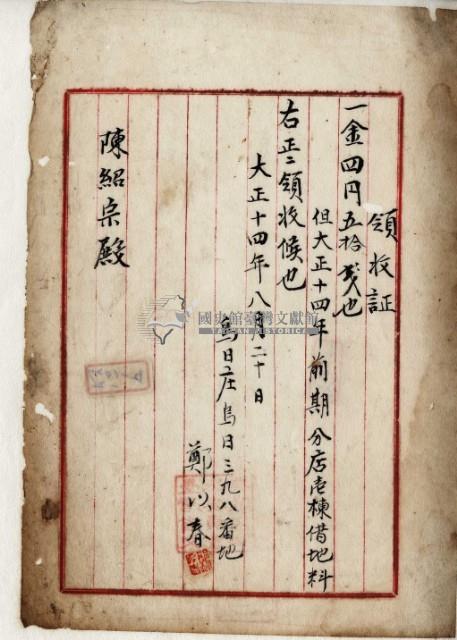 領收証
一金四円五拾戋也
但大正十四年前期分店壱棟借地料
右正ニ領收候也
大正十四年八月二十日
烏日庄烏日三九八番地
鄭以春
陳紹宗殿
國史館臺灣文獻館
TAIWAN HISTORICA